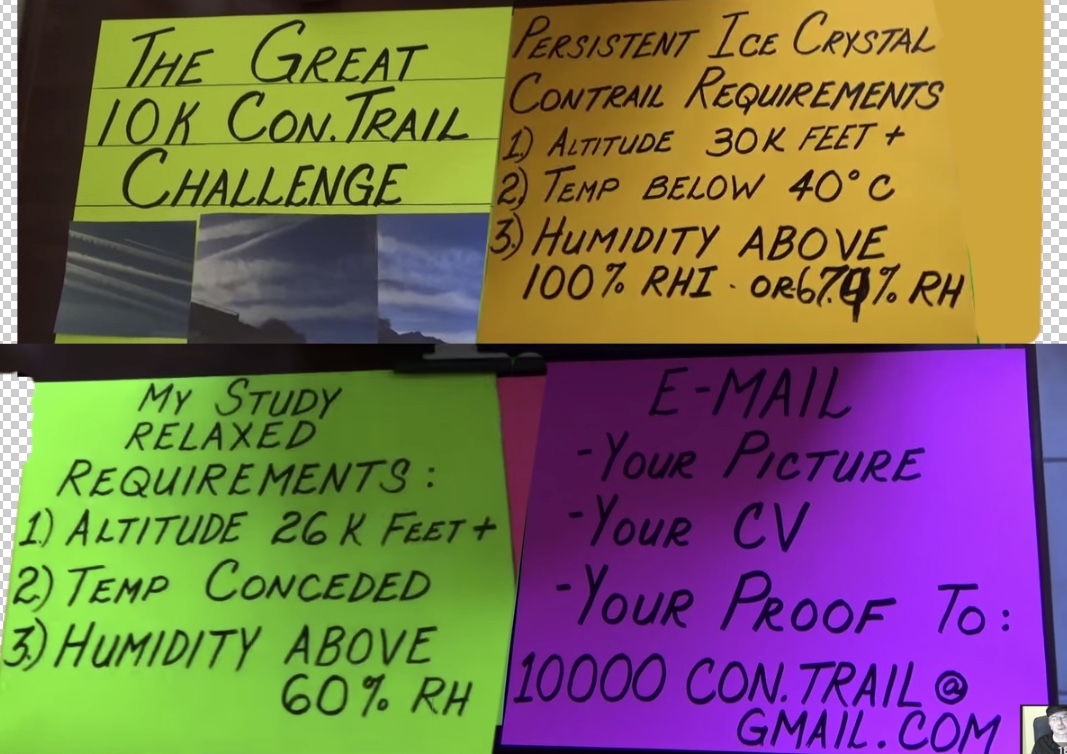 THE GREAT
10K CON.TRAIL
CHALLENGE
PERSISTENT ICE CRYSTAL
CONTRAIL REQUIREMENTS
1) ALTITUDE 30K FEET +
2) TEMP BELOW 40° C
3.) HUMIDITY ABOVE
100% RHI · OR 67.4% RH
MY STUDY
RELAXED
REQUIREMENTS:
1) ALTITUDE 26K FEET+
2) TEMP CONCEDED
3.) HUMIDITY ABOVE
60% RH
E-MAIL
-YOUR PICTURE
-YOUR CV
-YOUR PROOF TO:
10000 CON.TRAIL@
GMAIL.COM